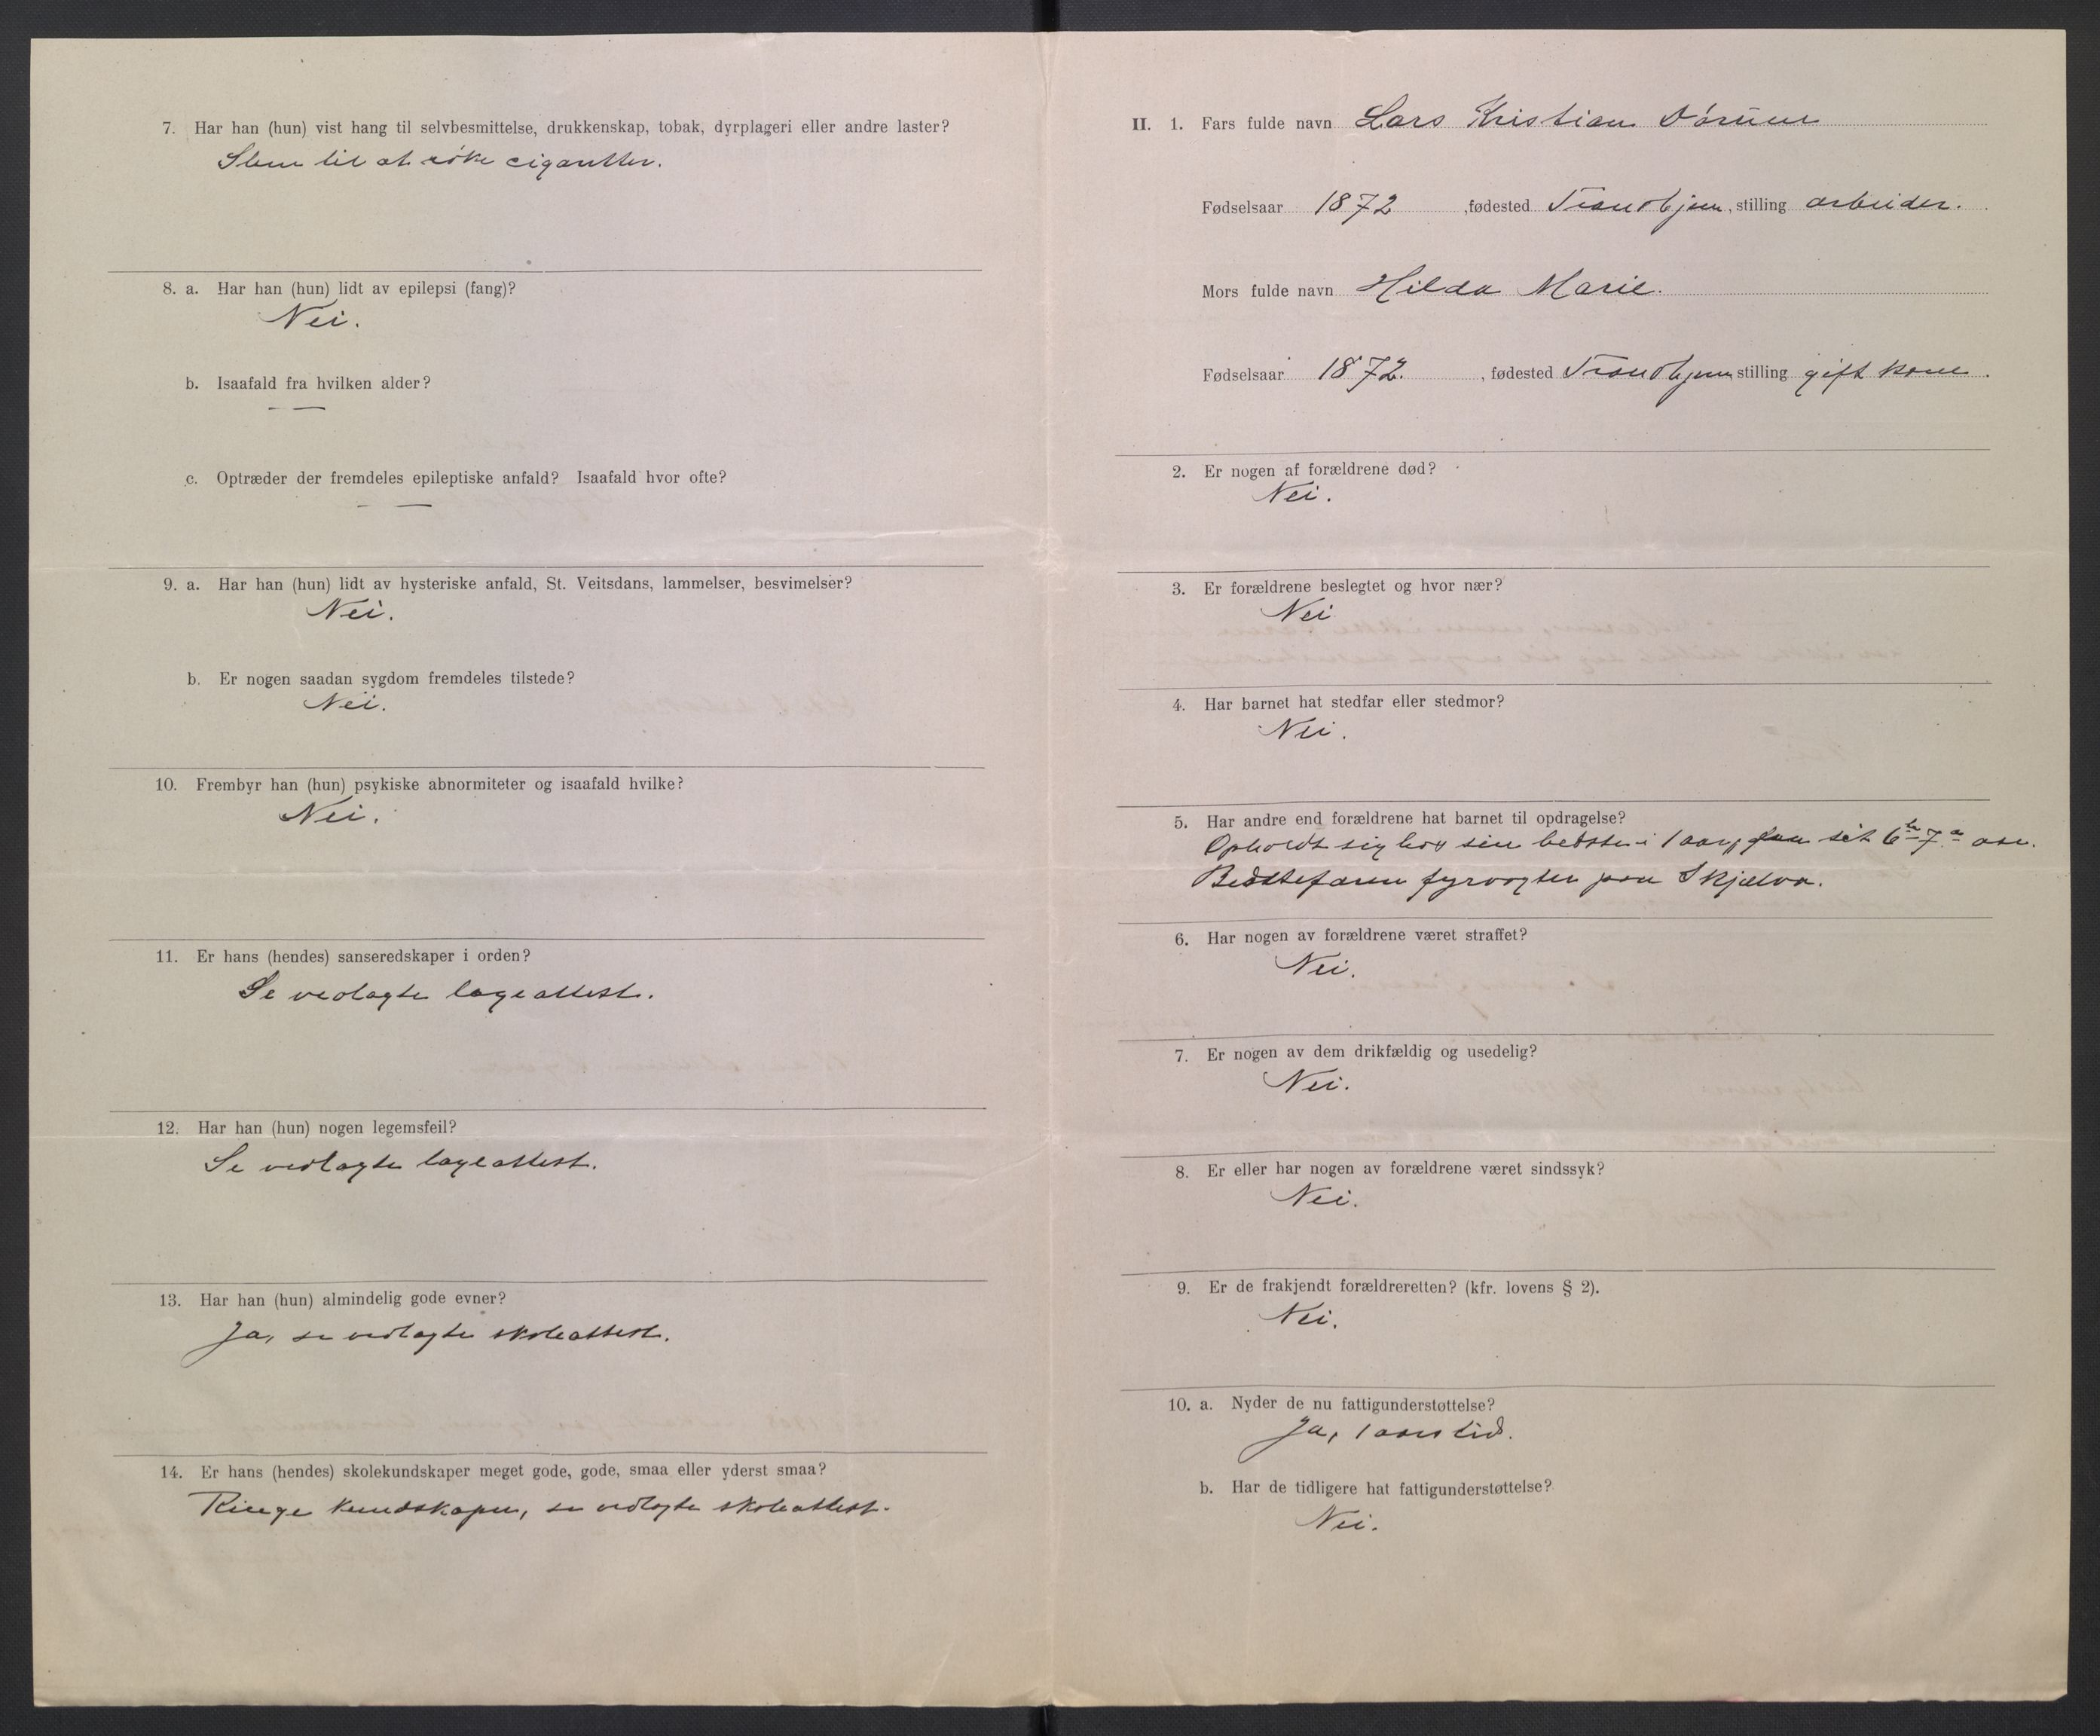 7. Har han (hun) vist hang til selvbesmittelse, drukkenskap, tobak, dyrplageri eller andre laster?
Slem til at røke cigaretter.
8. a. Har han (hun) lidt av epilepsi (fang)?
Nei.
b. Isaafald fra hvilken alder?
— —
c. Optræder der fremdeles epileptiske anfald? Isaafald hvor ofte?
— —
9. a. Har han (hun) lidt av hysteriske anfald, St. Veitsdans, lammelser, besvimelser?
Nei.
b. Er nogen saadan sygdom fremdeles tilstede?
Nei.
10. Frembyr han (hun) psykiske abnormiteter og isaafald hvilke?
Nei.
11. Er hans (hendes) sanseredskaper i orden?
Se vedlagte lægeattest.
12. Har han (hun) nogen legemsfeil?
Se vedlagte lægeattest.
13. Har han (hun) almindelig gode evner?
Ja, se vedlagte skoleattest.
14. Er hans (hendes) skolekundskaper meget gode, gode, smaa eller yderst smaa?
Ringe kundskaper, se vedlagte skoleattest.
II. 1. Fars fulde navn Lars Kristian
Fødselsaar 1872, fødested Trondhjem, stilling arbeider.
Mors fulde navn Hilda Marie.
Fødselsaar 1872., fødested Trondhjem stilling gift kone.
2. Er nogen af forældrene død?
Nei.
3. Er forældrene beslegtet og hvor nær?
Nei
4. Har barnet hat stedfar eller stedmor?
Nei.
5. Har andre end forældrene hat barnet til opdragelse?
Opholdt sig hos sin bedstef. i 1 aar, fra sit 6te–7de aar.
Bedstefaren fyrvogter paa Skjælva.
6. Har nogen av forældrene været straffet?
Nei.
7. Er nogen av dem drikfældig og usedelig?
Nei.
8. Er eller har nogen av forældrene været sindssyk?
Nei.
9. Er de frakjendt forældreretten? (kfr. lovens § 2).
Nei.
10. a. Nyder de nu fattigunderstøttelse?
Ja, 1 aars tid.
b. Har de tidligere hat fattigunderstøttelse?
Nei.